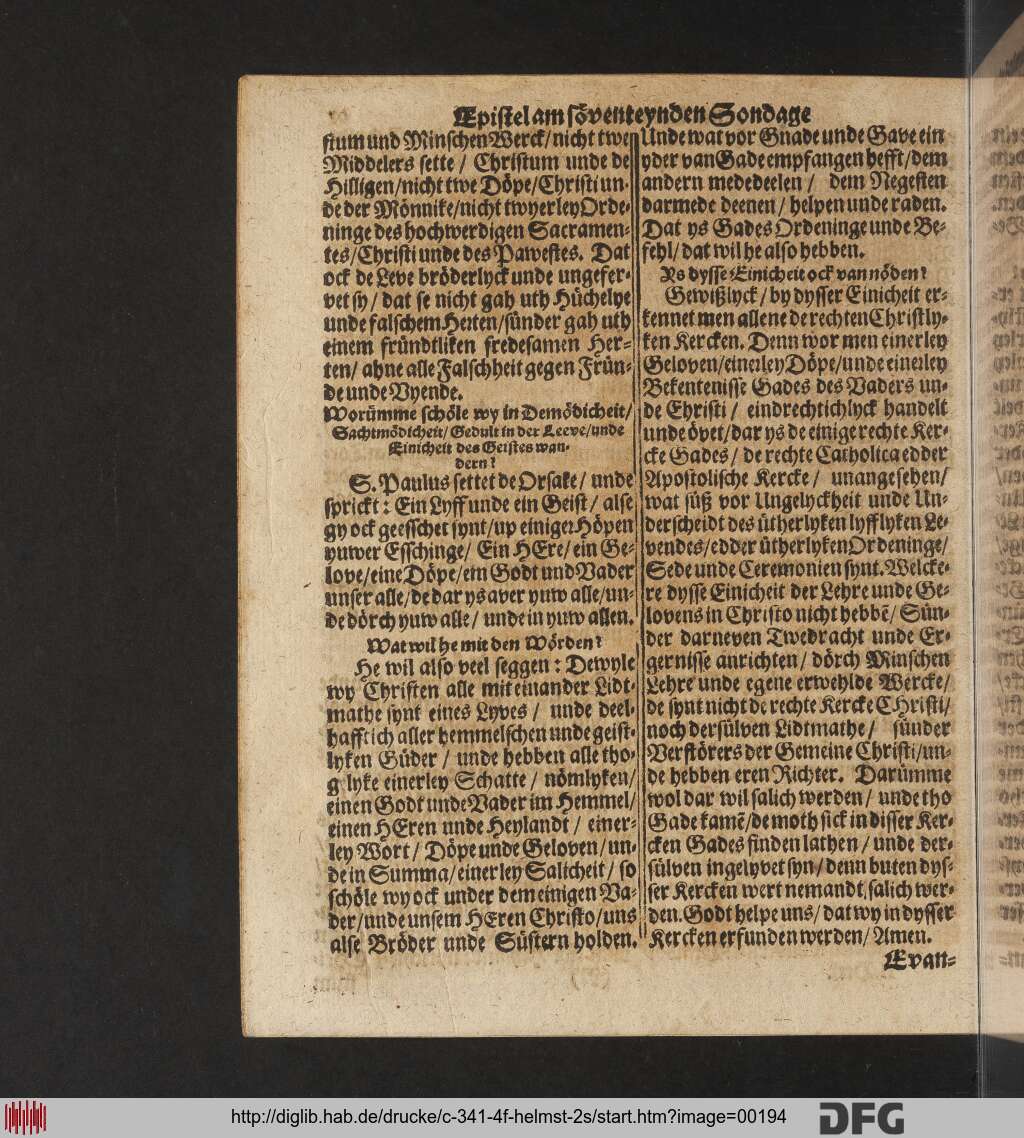 Epistel am söventeynden Sondage
stum und Minschen Werck/ nicht twe
Middelers sette/ Christum unde de
Hilligen/ nicht twe Döpe/ Christi un-
de der Mönnike/ nicht twyerley Orde-
ninge des hochwerdigen Sacramen-
tes/ Christi unde des Pawestes. Dat
ock de Leve bröderlyck unde ungefer-
vet sy/ dat se nicht gah uth Hüchelye
unde falschem Herten/ sünder gah uth
einem fründtliken fredesamen Her-
ten/ ahne alle Falschheit gegen Frün-
de unde Vyende.
Worümme schöle wy in Demödicheit/
Sachtmödicheit/ Gedult in der Leeve/ unde
Einicheit des Geistes wan-
dern?
S. Paulus settet de Orsake/ unde
sprickt: Ein Lyff unde ein Geist/ alse
gy ock geesschet synt/ up einiger Höpen
yuwer Esschinge/ Ein HEre/ ein Ge-
love/ eine Döpe/ ein Godt und Vader
unser alle/ de dar ys aver yuw alle/ un-
de dörch yuw alle/ unde in yuw allen.
Wat wil he mit den Wörden?
He wil also veel seggen: Dewyle
wy Christen alle mit einander Lidt-
mathe synt eines Lyves/ unde deel-
hafftich aller hemmelschen unde geist-
lyken Güder/ unde hebben alle tho-
g lyke einerley Schatte/ nömlyken/
einen Godt unde Vader im Hemmel/
einen HEren unde Heylandt/ einer-
ley Wort/ Döpe unde Geloven/ un-
de in Summa/ einerley Salicheit/ so
schöle wy ock under dem einigen Va-
der/ unde unsem HEren Christo/ uns
alse Bröder unde Süstern holden.
Unde wat vor Gnade unde Gave ein
yder van Gade empfangen hefft/ dem
andern mededeelen/ dem Negesten
darmede deenen/ helpen unde raden.
Dat ys Gades Ordeninge unde Be-
fehl/ dat wil he also hebben.
Ys dysse Einicheit ock van nöden?
Gewißlyck/ by dysser Einicheit er-
kennet men allene de rechten Christly-
ken Kercken. Denn wor men einerley
Geloven/ einerley Döpe/ unde einerley
Bekentenisse Gades des Vaders un-
de Christi/ eindrechtichlyck handelt
unde övet/ dar ys de einige rechte Ker-
cke Gades/ de rechte Catholica edder
Apostolische Kercke/ unangesehen/
wat süß vor Ungelyckheit unde Un-
derscheidt des ütherlyken lyfflyken Le-
vendes/ edder ütherlyken Ordeninge/
Sede unde Ceremonien synt. Welcke-
re dysse Einicheit der Lehre unde Ge-
lovens in Christo nicht hebbē/ Sün-
der darneven Twedracht unde Er-
gernisse anrichten/ dörch Minschen
Lehre unde egene erwehlde Wercke/
de synt nicht de rechte Kercke CHristi/
noch dersülven Lidtmathe/ sünder
Verstörers der Gemeine Christi/ un-
de hebben eren Richter. Darümme
wol dar wil salich werden/ unde tho
Gade kamē/ de moth sick in disser Ker-
cken Gades finden lathen/ unde der-
sülven ingelyvet syn/ denn buten dys-
ser Kercken wert nemandt salich wer-
den. Godt helpe uns/ dat wy in dysser
Kercken erfunden werden/ Amen.
Evan-
http://diglib.hab.de/drucke/c-341-4f-helmst-2s/start.htm?image=00194
DFG